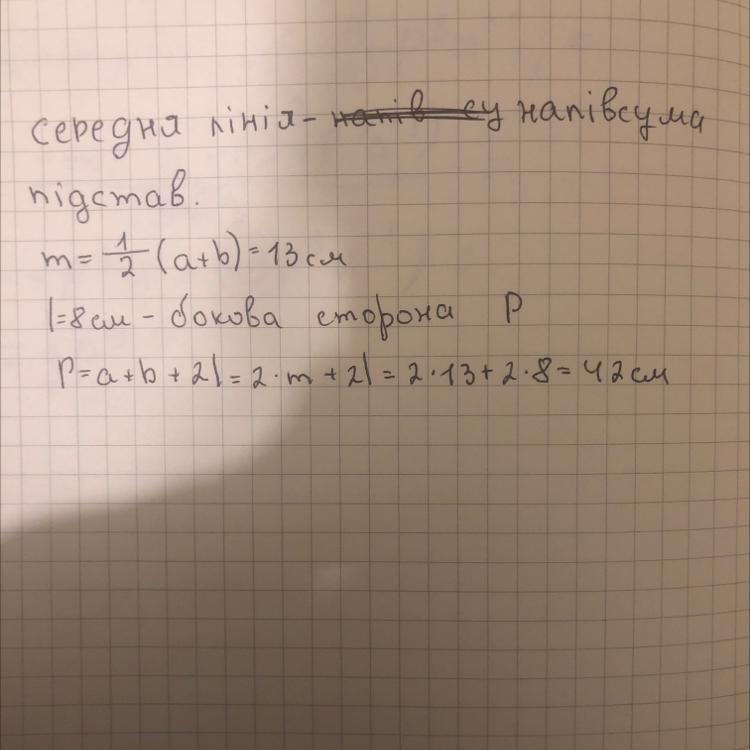 середня лінія - напів су напівсума
підстав.
m = 1/2 (a+b) = 13 см
l=8 см - бокова сторона P
P = a + b + 2l = 2·m + 2l = 2·13 + 2·8 = 42 см